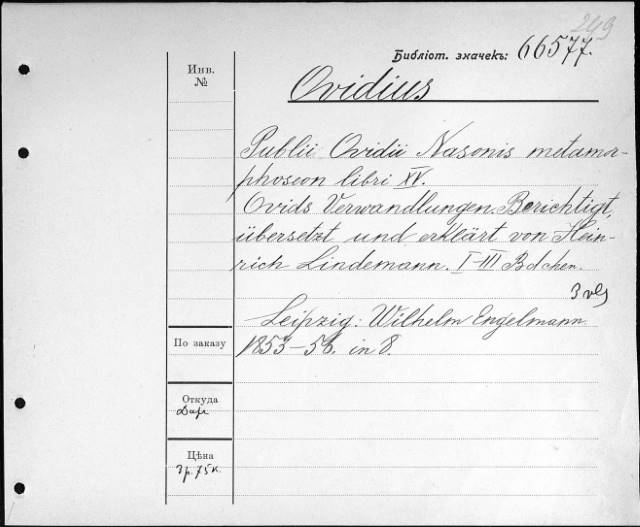 249
Библіот. значекъ: 66577.
Инв.
№
Ovidius
Publii Ovidii Nasonis metamor-
phoseon libri XV.
Ovids Verwandlungen. Berichtigt,
übersetzt und erklärt von Hein-
rich Lindemann. I-III Bdchen.
3 vls
Leipzig: Wilhelm Engelmann
По заказу
1853-56. in 8.
Откуда
Дар
Цѣна
3р. 75к.